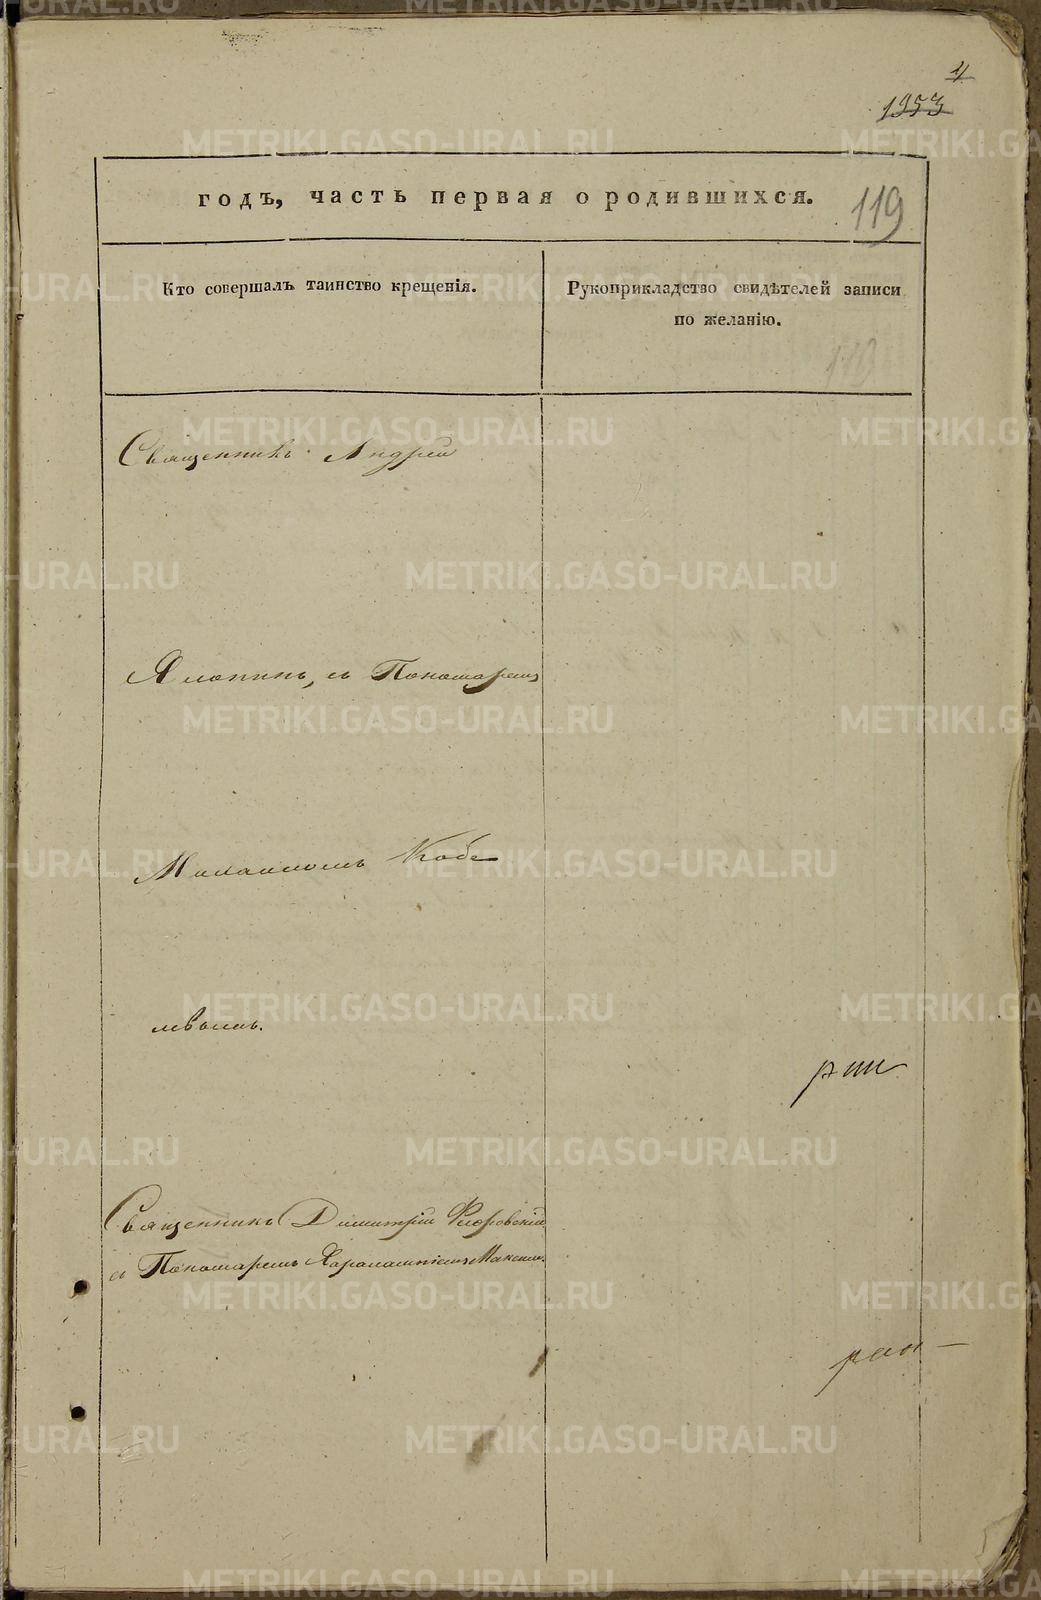 4
1353
годъ, часть первая о родившихся.
119
Кто совершалъ таинство крещенія.
Рукоприкладство свидѣтелей записи
по желанію.
119
Священникъ Андрей
Ялопинъ, съ Пономаремъ
Михаиломъ Кобе
левымъ.
Священникъ Димитрій Флоровскій
съ Пономаремъ Харалампіемъ Максим.
METRIKI.GASO-URAL.RU